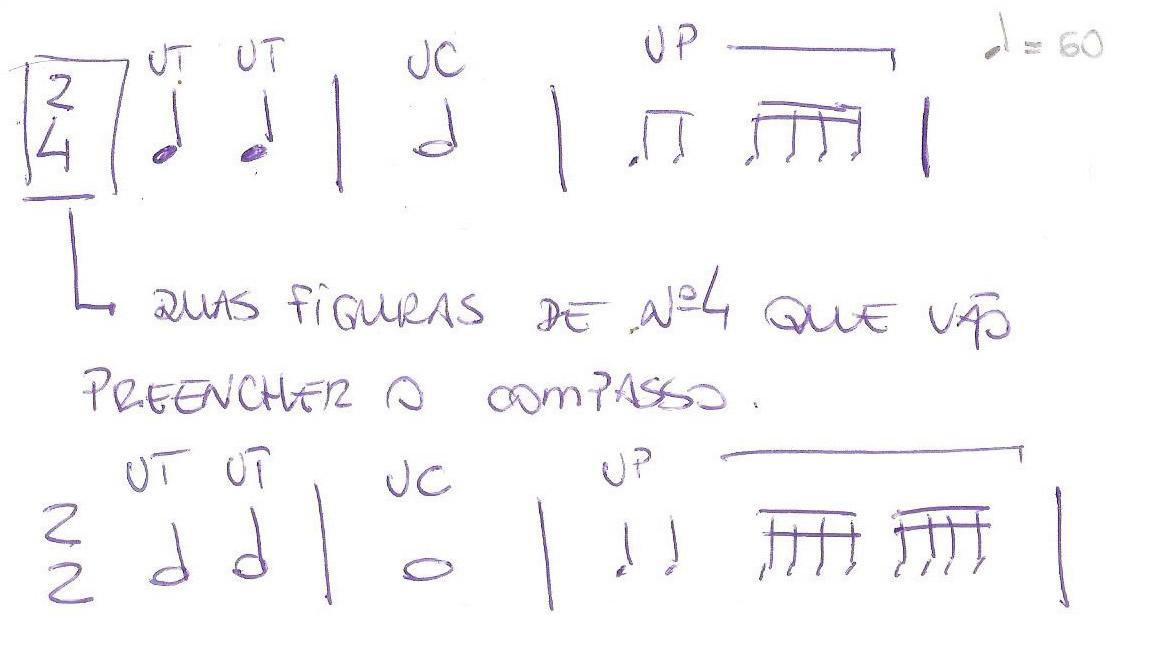 UT UT UC UP ♩ = 60
2
4
QUAS FIGURAS DE Nº4 QUE VÃO
PREENCHER O COMPASSO.
UT UT UC UP
2
2